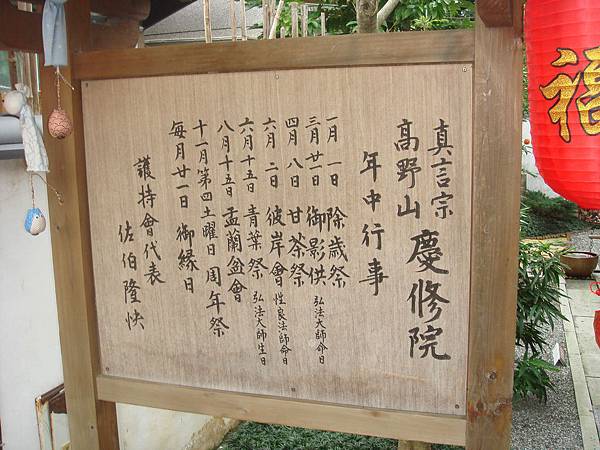 真言宗
高野山 慶修院
年中行事
一月一日 除歳祭
三月廿一日 御影供 弘法大師命日
四月八日 甘茶祭
六月二日 彼岸會 性良法師命日
六月十五日 青葉祭 弘法大師生日
八月十五日 盂蘭盆會
十一月第四土曜日 周年祭
毎月廿一日 御縁日
護持會代表
佐伯隆快
福